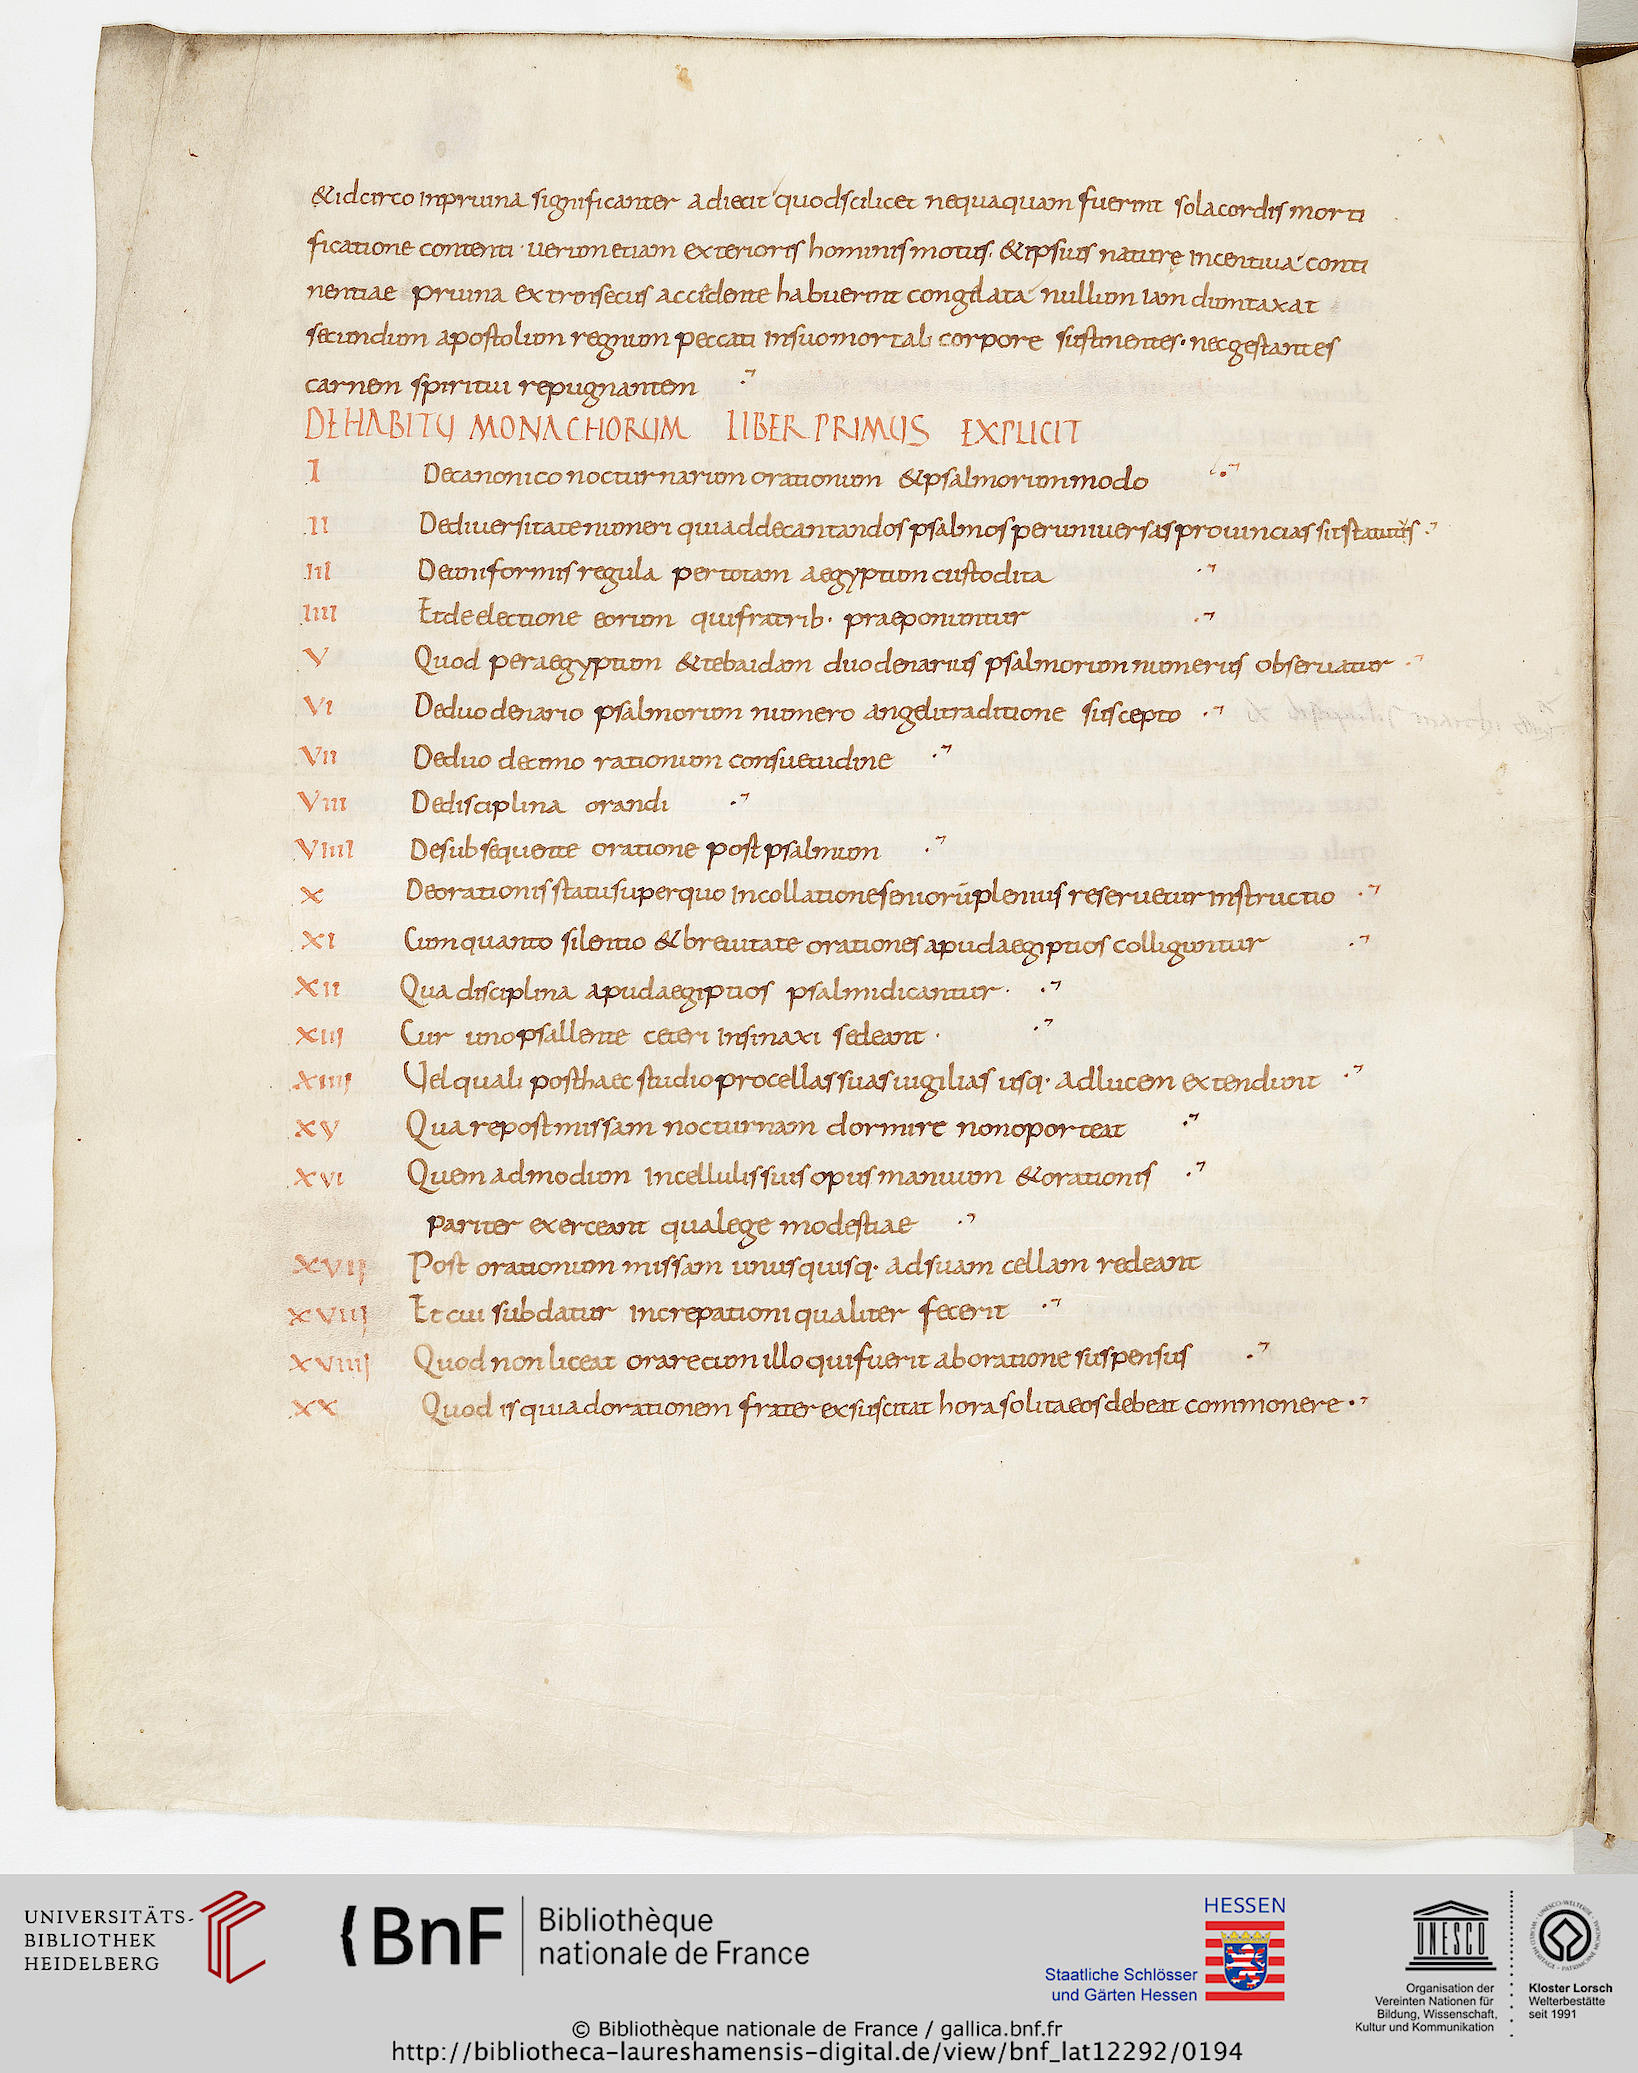 &idcirco inpruina significanter adiecit quod scilicet nequaquam fuerint sola cordis morti
ficatione contenti · uerum etiam exterioris hominis motus · & ipsius naturę incentiua conti
nentiae pruina extrinsecus accidente habuerint congelata nullum iam dumtaxat
secundum apostolum regnum peccati in suo mortali corpore sustinentes · nec gestantes
carnem spiritui repugnantem
DE HABITU MONACHORUM LIBER PRIMUS EXPLICIT
I De canonico nocturnarum orationum & psalmorum modo
II De diuersitate numeri qui ad decantandos psalmos per uniuersas prouincias sit statutus
III De uniformis regula per totam aegyptum custodita
IIII Et de electione eorum qui fratrib· praeponuntur
V Quod per aegyptum & tebaidam duodenarius psalmorum numerus obseruatur
VI De duodenario psalmorum numero angeli traditione suscepto
VII De duodecimo rationum consuetudine
VIII De disciplina orandi
VIIII De subsequente oratione post psalmum
X De orationis statu super quo in collatione seniorū plenius reseruetur instructio
XI Cum quanto silentio & breuitate orationes apud aegiptios colliguntur
XII Qua disciplina apud aegiptios psalmi dicantur ·
XIII Cur uno psallente ceteri insinaxi sedeant ·
XIIII Uel quali post haec studio pro cellas suas uigilias usq· ad lucem extendunt
XV Quare post missam nocturnam dormire non oporteat
XVI Quemadmodum in cellulis suis opus manuum & orationis
pariter exerceant qua lege modestiae
XVII Post orationum missam unusquisq· ad suam cellam redeant
XVIII Et cui subdatur increpationi qualiter fecerit
XVIIII Quod non liceat orare cum illo qui fuerit ab oratione suspensus
XX Quod is qui ad orationem frater exsuscitat hora solita eos debeat commonere
UNIVERSITÄTS-
BIBLIOTHEK
HEIDELBERG
BnF
Bibliothèque
nationale de France
HESSEN
Staatliche Schlösser
und Gärten Hessen
UNESCO
Organisation der
Vereinten Nationen für
Bildung, Wissenschaft,
Kultur und Kommunikation
Kloster Lorsch
Welterbestätte
seit 1991
© Bibliothèque nationale de France / gallica.bnf.fr
http://bibliotheca-laureshamensis-digital.de/view/bnf_lat12292/0194